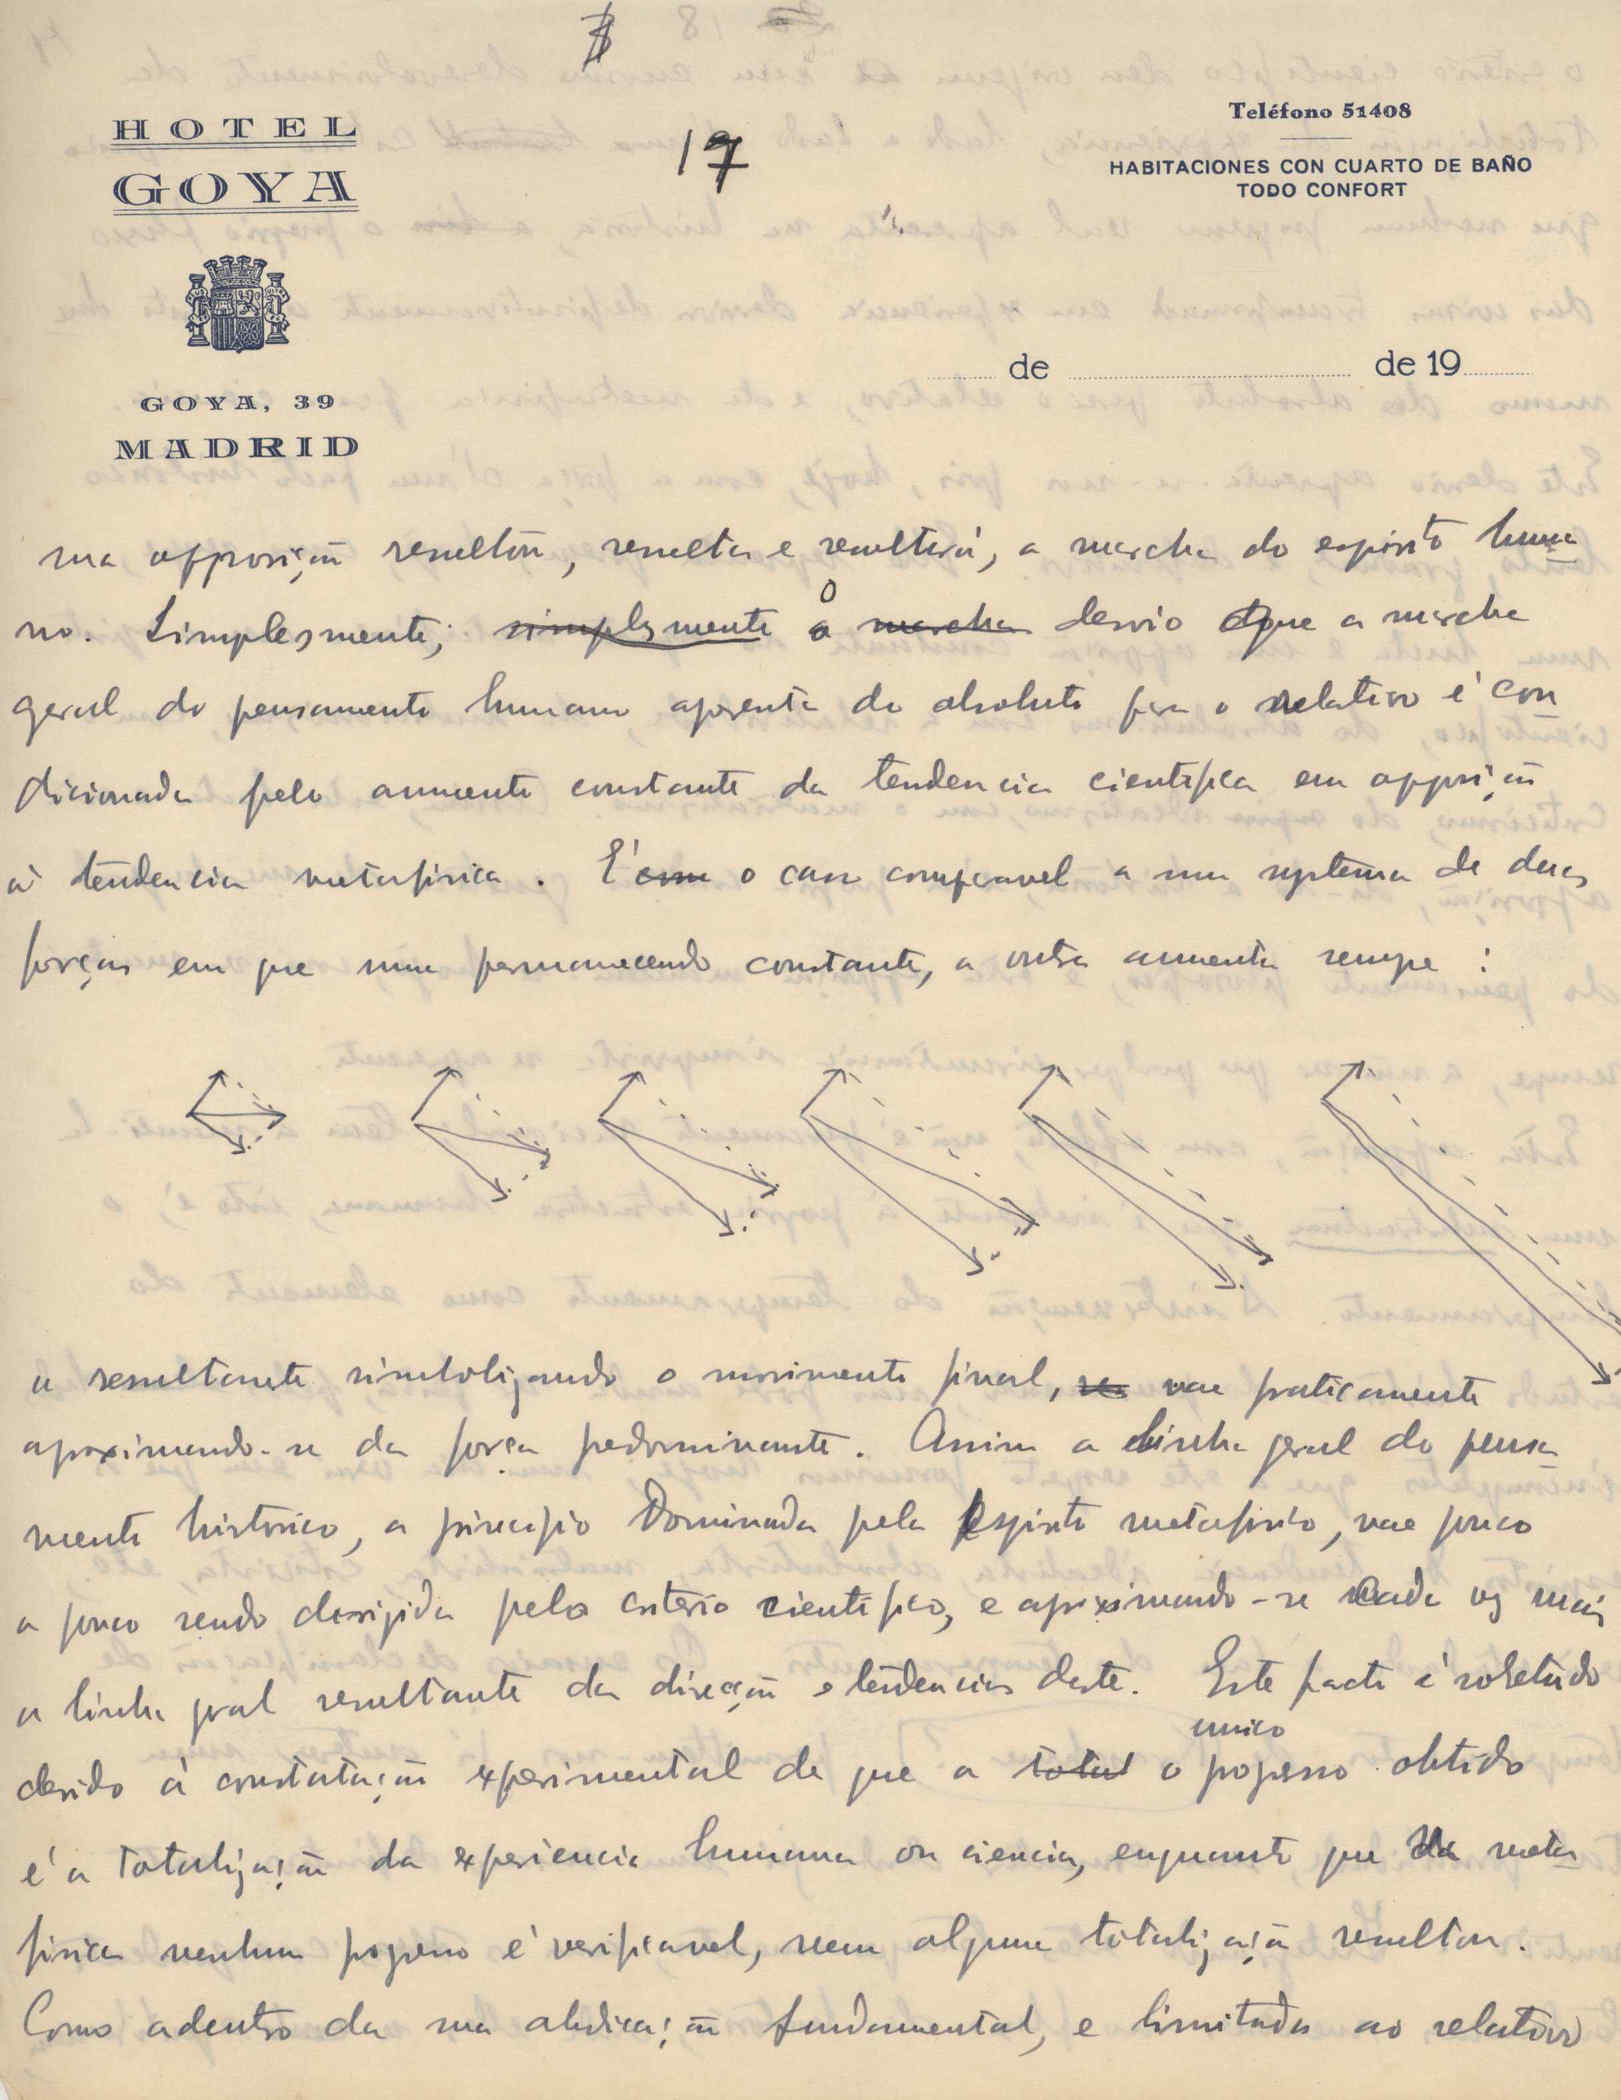 17
HOTEL
GOYA
GOYA, 39
MADRID
Teléfono 51408
HABITACIONES CON CUARTO DE BAÑO
TODO CONFORT
de de 19
sua opposição resultou, resulta e resultará, a marcha do espirito huma
no. Simplesmente, simplesmente o marcha desvio que a marcha
geral do pensamento humano apresenta do absoluto para o relativo é con
dicionada pelo aumento constante da tendencia cientifica em opposição
á tendencia metafisica. É como o caso comparavel a um systema de duas
forças em que uma permanecendo constante, a outra aumenta sempre :
a resultante simbolizando o movimento final, vae praticamente
aproximando-se da força predominante. Assim a linha geral do pensa
mento historico, a principio dominada pelo espirito metafisico, vae pouco
a pouco sendo dirigida pelo criterio cientifico, e aproximando-se cada vez mais
a linha geral resultante da direcção e tendencias deste. Este facto é sobretudo
devido á constatação experimental de que a total o unico progresso obtido
é a totalização da experiencia humana ou ciencia, enquanto que da meta
fisica nenhum progresso é verificavel, nem alguma totalização resultou.
Como adentro da sua abdicação fundamental, e limitada ao relativo